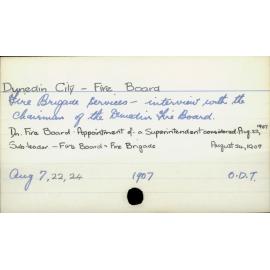 Dunedin City - Fire Board
Fire Brigade Services - interview with the
Chairman of the Dunedin Fire Board.
1907
Dn. Fire Board - Appointment of a Superintendent considered. Aug. 22,
Sub-leader - Fire Board - Fire Brigade August 24, 1907
Aug 7, 22, 24 1907 O.D.T.